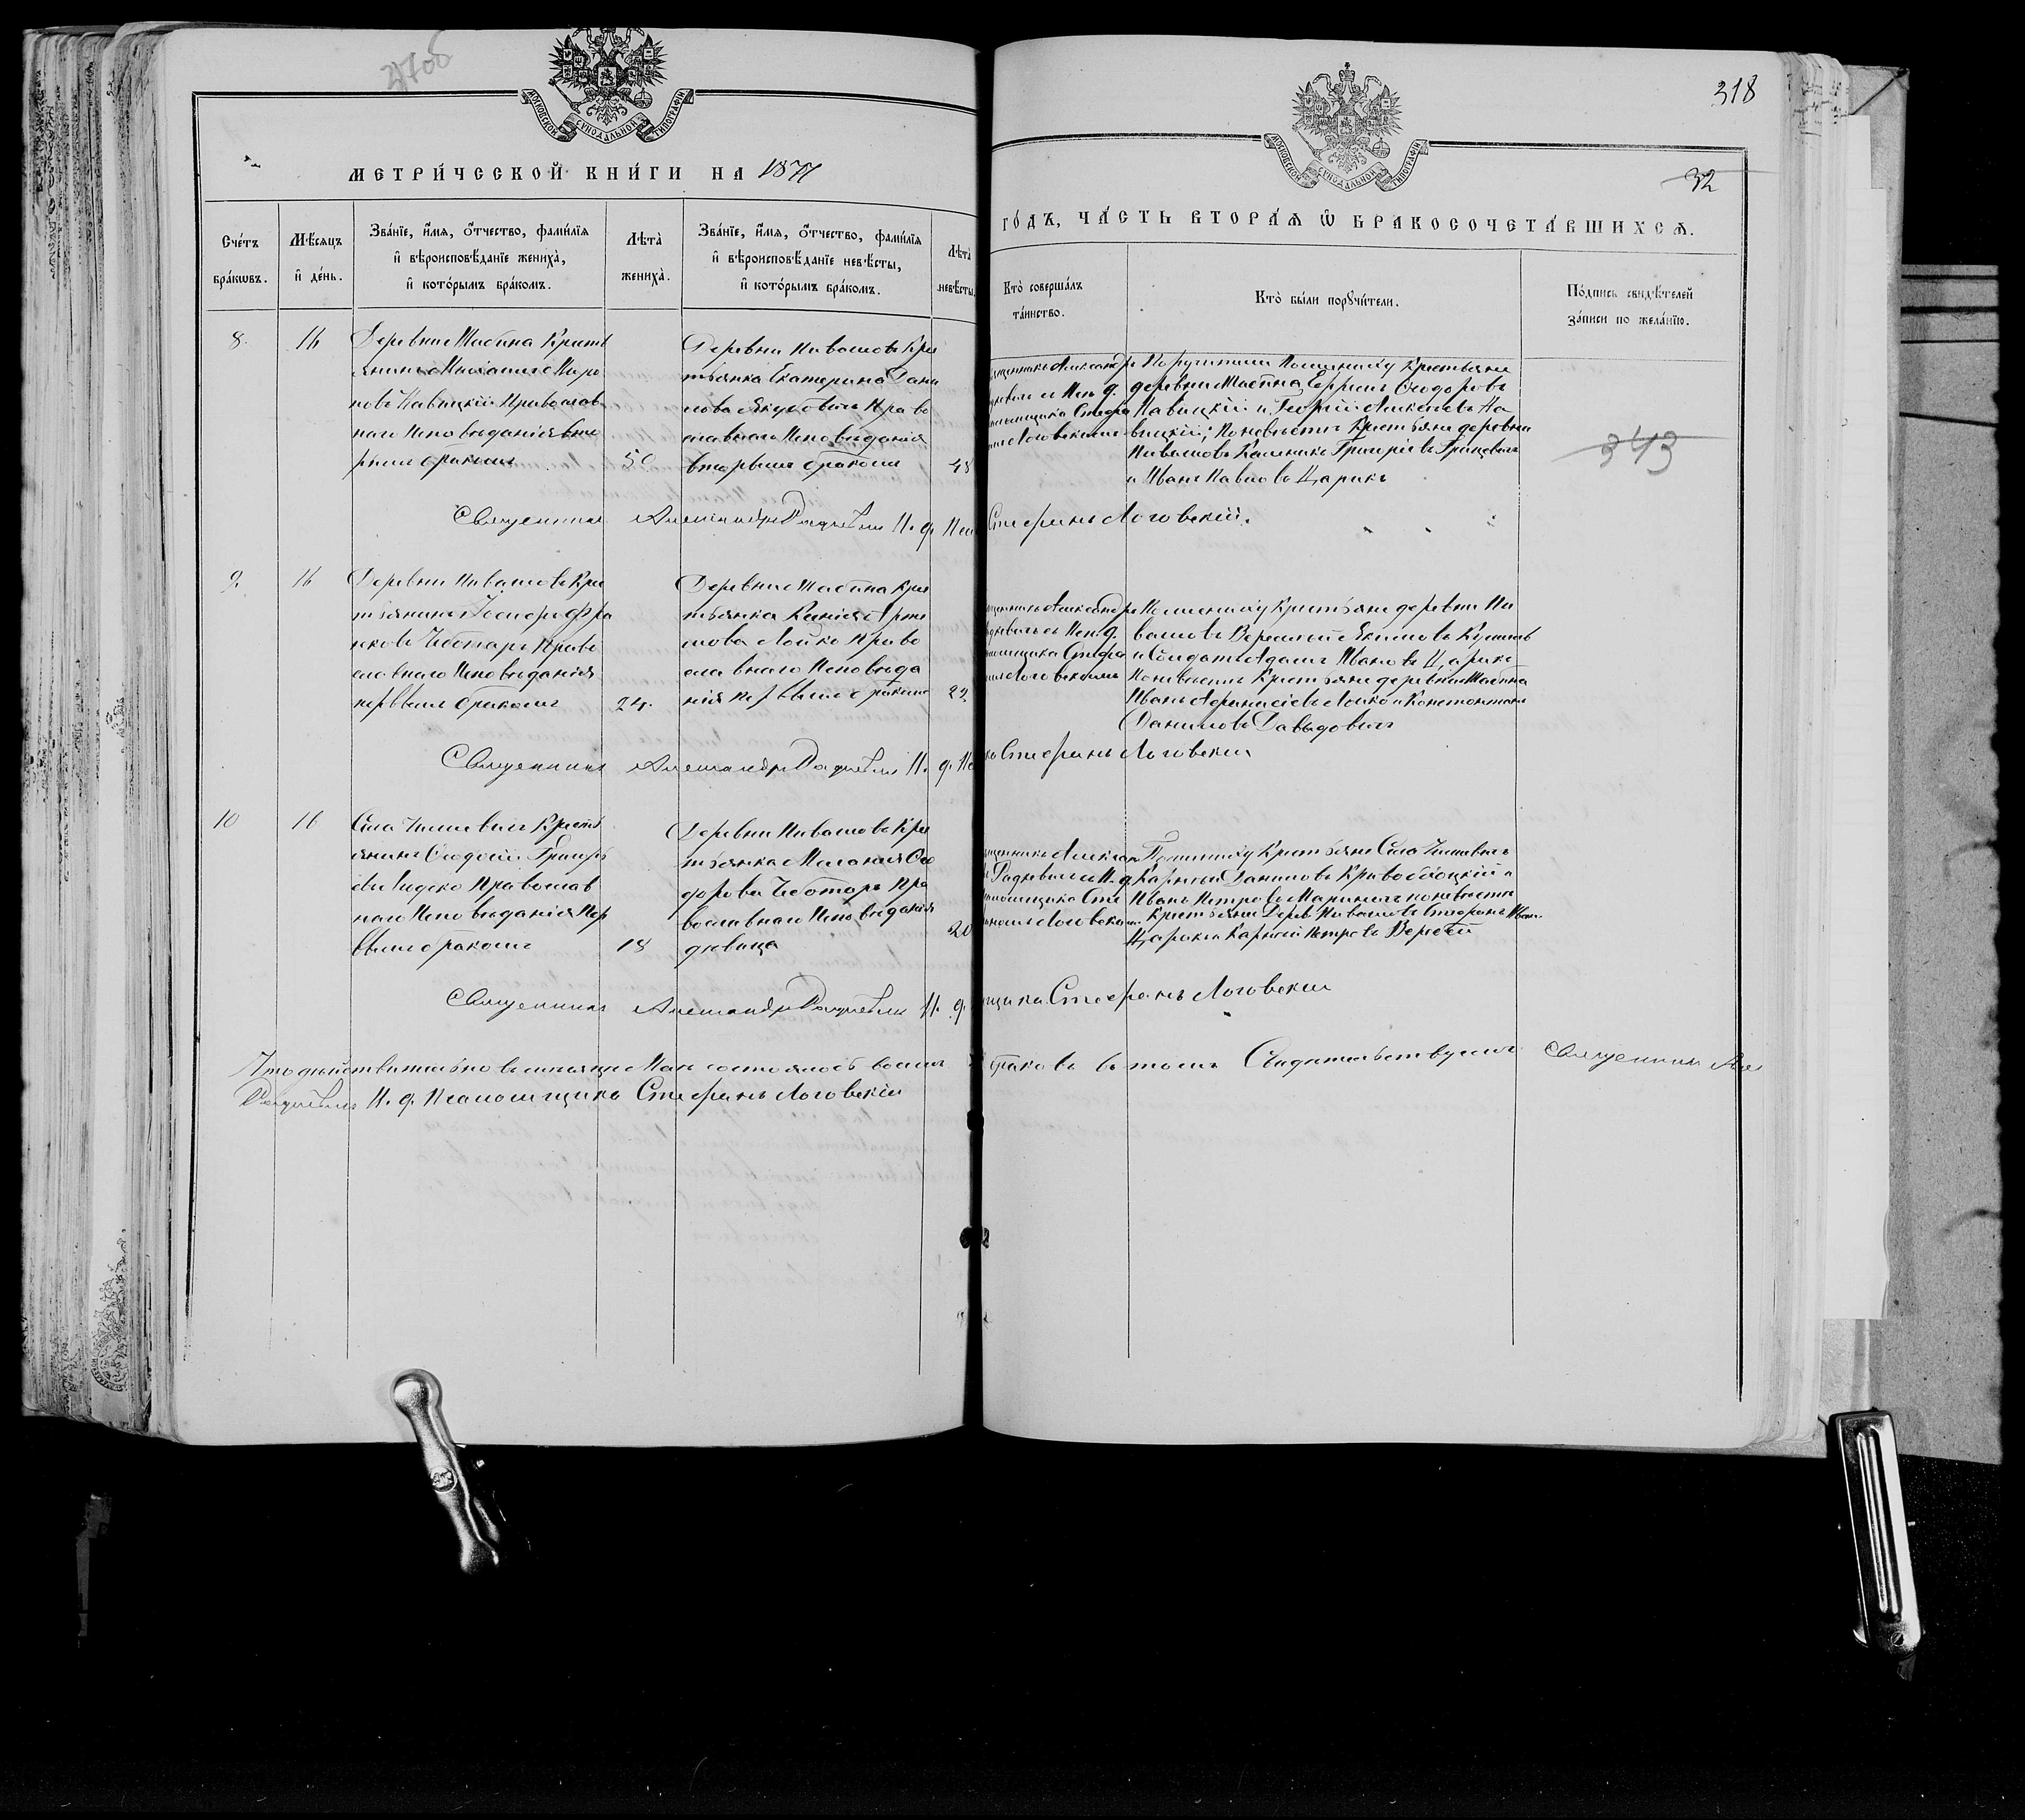 318
32
МОСКОВСКОЙ СѴНОДАЛЬНОЙ ТИПОГРАФІИ
МОСКОВСКОЙ СѴНОДАЛЬНОЙ ТИПОГРАФІИ
МЕТРИ́ЧЕСКОЙ КНИ́ГИ НА 1871
ГО́ДЪ, ЧА́СТЬ ВТОРА́Ѧ Ѽ БРАКОСОЧЕТА́ВШИХСѦ.
Сче́тъ
бра́кѡвъ.
Мѣ́сяцъ
и҆ де́нь.
Зва́нїе, и҆́мѧ, ѻ҆́тчество, фами́лїя
и҆ вѣроисповѣ́данїе жениха̀,
и҆ кото́рымъ бра́комъ.
Лѣта̀
жениха̀.
Зва́нїе, и҆́мѧ, ѻ҆́тчество, фами́лїя
и҆ вѣроисповѣ́данїе невѣ́сты,
и҆ кото́рымъ бра́комъ.
Лѣта̀
невѣ́сты.
Кто̀ соверша́лъ
та́инство.
Кто̀ бы́ли порꙋчи́тели.
По́дпись свидѣ́телей
за́писи по жела́нїю.
8.
16
Деревни Мастина Кресть
янинъ Михаилъ Миро
новъ Навицкій Православ
наго Исповѣданія вто
рымъ бракомъ
50
Деревни Ивашовъ Кре
стьянка Екатерина Дани
лова Якубовичъ Право
славнаго Исповѣданія
вторымъ бракомъ
48
Александръ
съ Исп. д.
Стефа
номъ Логовскимъ
Поручители По женихѣ Крестьяне
деревни Мастина Сергѣй Ѳеодоровъ
Навицкій и Георгій Алексѣевъ На
вицкій; По невѣстѣ Крестьяне деревни
Ивашовъ Каленикъ Григорьевъ Грицевичъ
и Иванъ Павловъ Царикъ
343
Священникъ Александръ Радкевичъ И. д. Пса Стефанъ Логовскій.
9.
16
Деревни Ивашовъ Кре
стьянинъ Іосифъ Фра
нковъ Чеботарь Право
славнаго Исповѣданія
первымъ бракомъ
24.
Деревни Мастина Кре
стьянка Ксенія Арте
мова Лойко Право
славнаго Исповѣда
нія первымъ бракомъ
22
Александръ
съ Исп. д.
Стефа
номъ Логовскимъ
По женихѣ Крестьяне деревни И
вашовъ Екимовъ
и Солдатъ Адамъ Ивановъ Царикъ
По невѣстѣ Крестьяне деревни Мастина
Иванъ Афанасіевъ Лойко и Константинъ
Даниловъ Давыдовичъ
Священникъ Александръ Радкевичъ И. д. Стефанъ Логовскій
10
16
Села Кресть
янинъ Ѳеодосій Григорь
евъ Православ
наго Исповѣданія Пер
вымъ бракомъ
18
Деревни Ивашовъ Кре
стьянка Меланія Ѳео
дорова Чеботарь Пра
вославнаго Исповѣданія
дѣвица
20
Алексан
Радкевичъ съ И. д.
Сте
фаномъ Логовским.
По женихѣ Крестьяне Села
Карпъ Даниловъ Кривоблоцкій и
Иванъ Петровъ Мариничъ по невѣстѣ
Крестьяне Дерев. Ивашовъ Стефанъ Иван.
Царикъ и Карпъ Петровъ Веребей
Священникъ Александръ Радкевичъ И. д. щика Стефанъ Логовскій
Что дѣйствительно въ мѣсяцѣ Маѣ состоялось восемь браковъ въ томъ Свидѣтельствуемъ Священникъ Але
Радкевичъ И. д. Псаломщика Стефанъ Логовскій